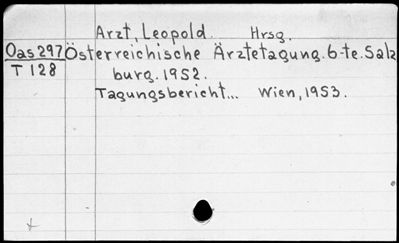 Arzt, Leopold. Hrsg.
Oas 297 Österreichische Ärztetagung. 6-te. Salz
T 128 burg. 1952.
Tagungsbericht... Wien, 1953.